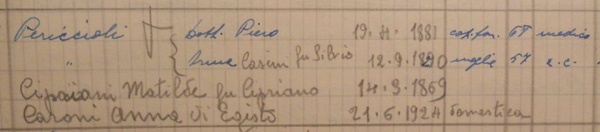 Periccioli dott. Piero 19.4.1881 cap.fam. 68 medico
" Casini fu Silvio 12.9.1890 moglie 57 a.c.
Cipriani Matilde fu Cipriano 14.3.1869
Caroni Anna di Egisto 21.6.1924 domestica